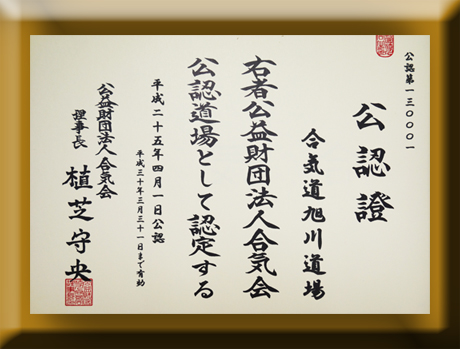 公認第一三〇〇〇一
公認證
合気道旭川道場
右者公益財団法人合気会
公認道場として認定する
平成二十五年四月一日公認
平成三十年三月三十一日まで有効
公益財団法人合気会
理事長 植芝守央